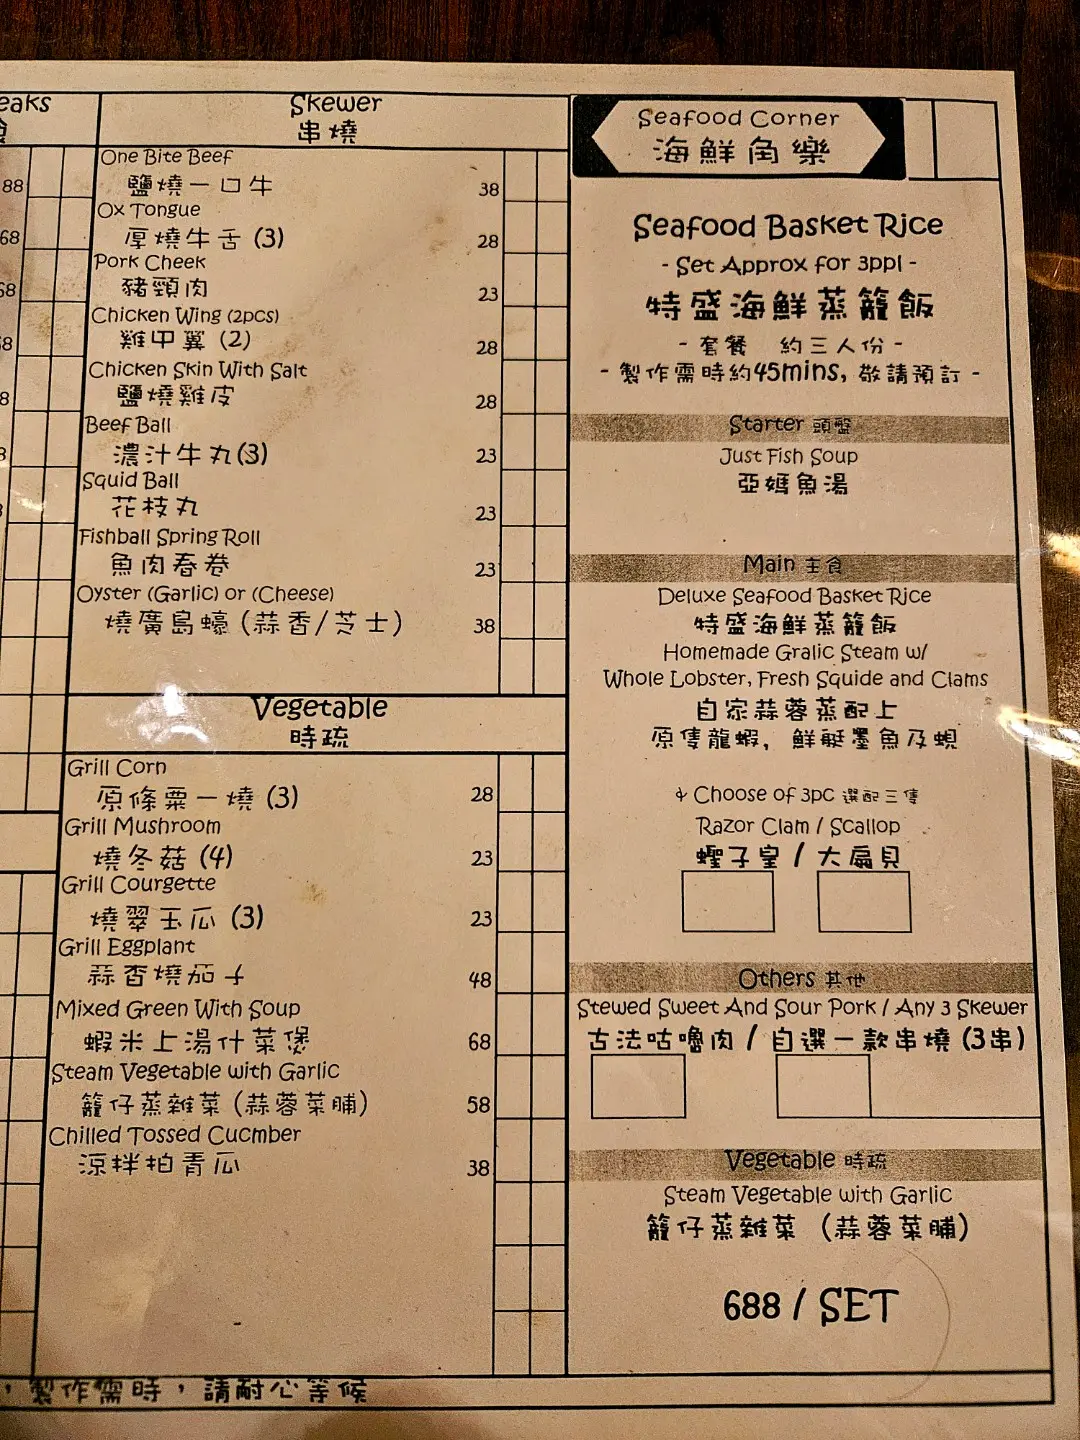 eaks
Skewer
串燒
88
68
68
8
8
8
One Bite Beef
鹽燒一口牛
38
Ox Tongue
厚燒牛舌 (3)
28
Pork Cheek
豬頸肉
23
Chicken Wing (2pcs)
雞甲翼 (2)
28
Chicken Skin With Salt
鹽燒雞皮
28
Beef Ball
濃汁牛丸(3)
23
Squid Ball
花枝丸
23
Fishball Spring Roll
魚肉春卷
23
Oyster (Garlic) or (Cheese)
燒廣島蠔 (蒜香/芝士)
38
Vegetable
時蔬
Grill Corn
原條粟一燒 (3)
28
Grill Mushroom
燒冬菇 (4)
23
Grill Courgette
燒翠玉瓜 (3)
23
Grill Eggplant
蒜香燒茄子
48
Mixed Green With Soup
蝦米上湯什菜煲
68
Steam Vegetable with Garlic
籠仔蒸雜菜 (蒜蓉菜脯)
58
Chilled Tossed Cucmber
涼拌拍青瓜
38
Seafood Corner
海鮮角樂
Seafood Basket Rice
- Set Approx for 3ppl -
特盛海鮮蒸籠飯
- 套餐 約三人份 -
- 製作需時約45mins, 敬請預訂 -
Starter 頭盤
Just Fish Soup
亞媽魚湯
Main 主食
Deluxe Seafood Basket Rice
特盛海鮮蒸籠飯
Homemade Gralic Steam w/
Whole Lobster, Fresh Squide and Clams
自家蒜蓉蒸配上
原隻龍蝦, 鮮艇墨魚及蜆
& Choose of 3pc 選配三隻
Razor Clam / Scallop
蟶子皇 / 大扇貝
Others 其他
Stewed Sweet And Sour Pork / Any 3 Skewer
古法咕嚕肉 / 自選一款串燒 (3串)
Vegetable 時蔬
Steam Vegetable with Garlic
籠仔蒸雜菜 (蒜蓉菜脯)
688 / SET
, 製作需時, 請耐心等候